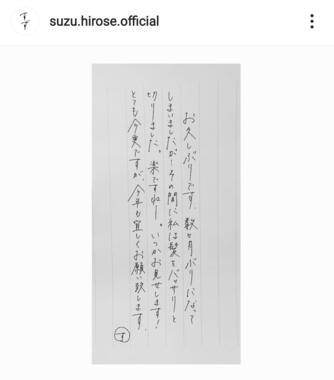 すず
suzu.hirose.official
お久しぶりです。数ヶ月ぶりになって
しまいましたが…その間に私は髪をバッサリと
切りました。楽ですねー。いつかお見せします!
とても今更ですが、今年も宜しくお願い致します。
す